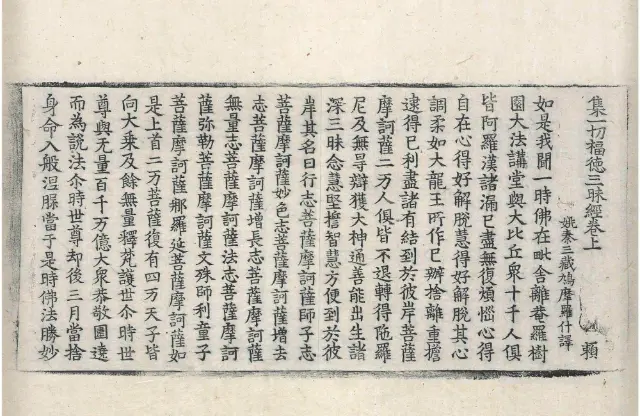 集一切福德三昧經卷上
賴
姚秦三藏鳩摩羅什譯
如是我聞一時佛在毗舍離菴羅樹
園大法講堂與大比丘衆十千人俱
皆阿羅漢諸漏已盡無復煩惱心得
自在心得好解脫慧得好解脫其心
調柔如大龍王所作已辦捨離重擔
逮得己利盡諸有結到於彼岸菩薩
摩訶薩二万人俱皆不退轉得陁羅
尼及無导辯獲大神通善能出生諸
深三昧念慧堅擔智慧方便到於彼
岸其名曰行志菩薩摩訶薩師子志
菩薩摩訶薩妙色志菩薩摩訶薩增去
志菩薩摩訶薩增長志菩薩摩訶薩
無量志菩薩摩訶薩法志菩薩摩訶
薩弥勒菩薩摩訶薩文殊師利童子
菩薩摩訶薩那羅延菩薩摩訶薩如
是上首二万菩薩復有四万天子皆
向大乗及餘無量釋梵護世尒時世
尊與无量百千万億大衆恭敬圍遶
而為說法尒時世尊却後三月當捨
身命入般涅槃當于是時佛法勝妙